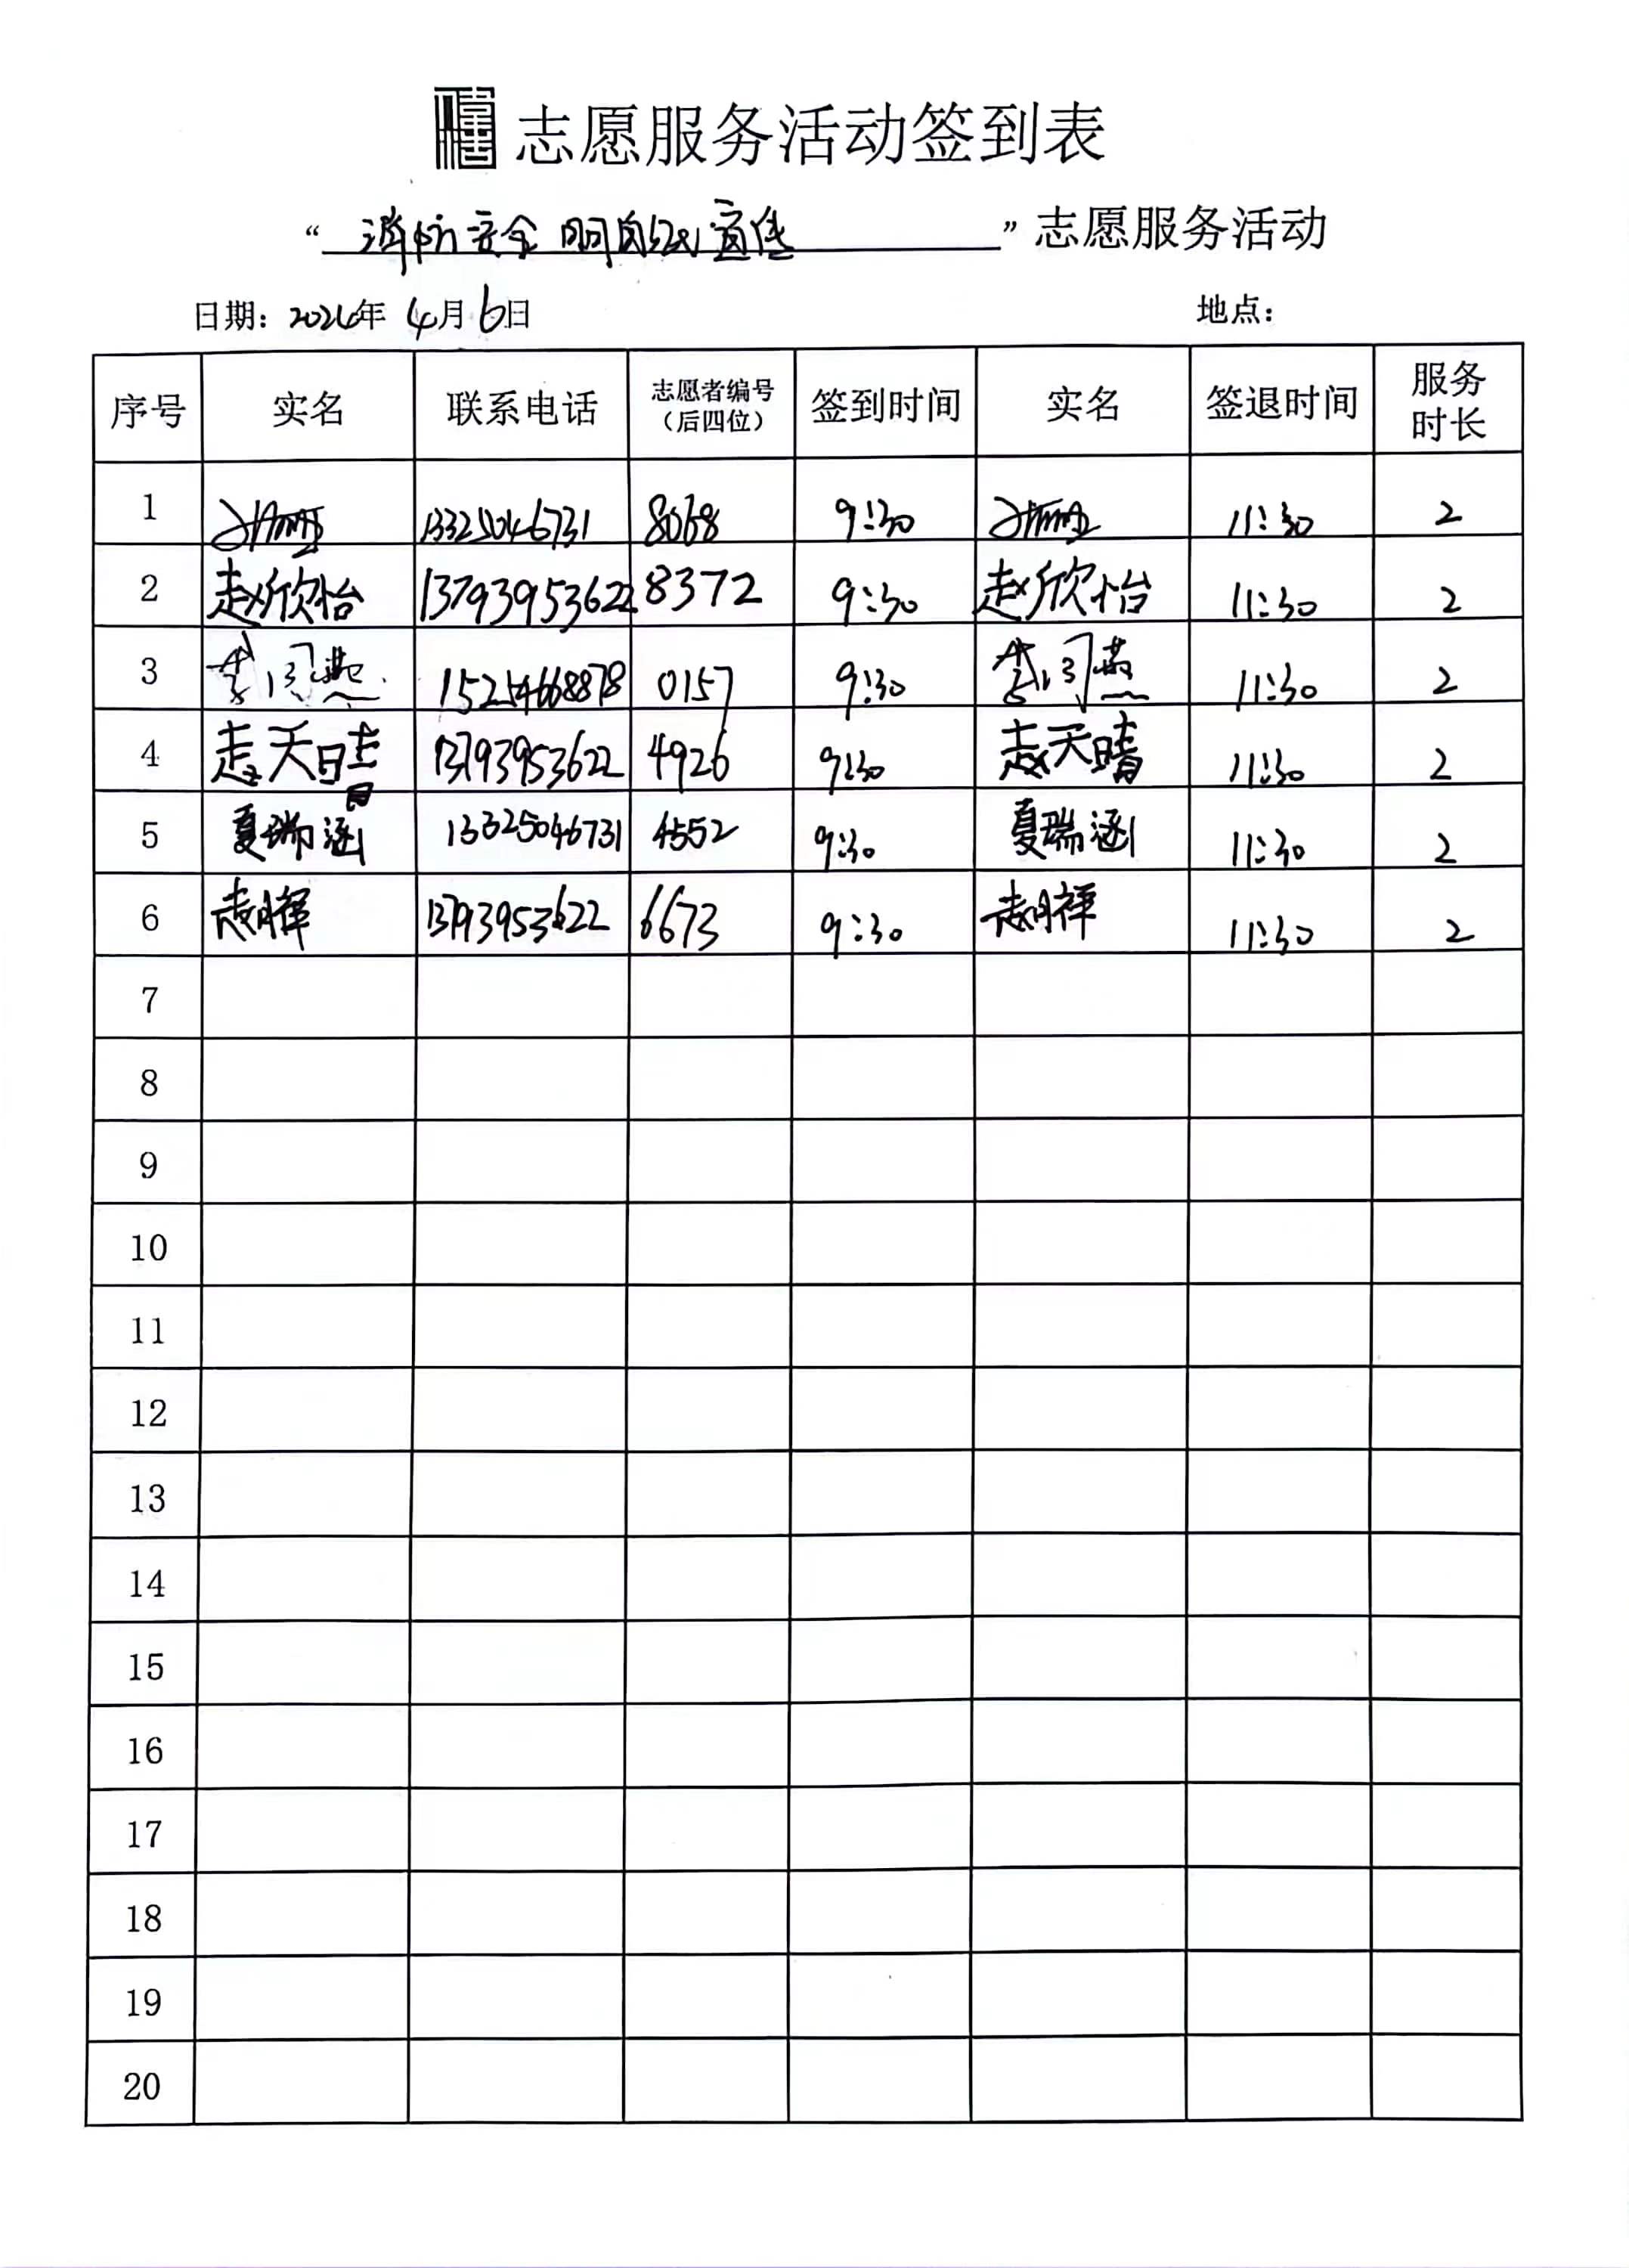 志愿服务活动签到表
“消防安全 宣传”志愿服务活动
日期：2024年 4月 6日 地点：
序号 实名 联系电话 志愿者编号（后四位） 签到时间 实名 签退时间 服务时长
1 13325046731 8068 9:30 11:30 2
2 赵欣怡 13793953622 8372 9:30 赵欣怡 11:30 2
3 李闫燕 15254668878 0157 9:30 李闫燕 11:30 2
4 赵天晴 13793953622 4926 9:30 赵天晴 11:30 2
5 夏瑞涵 13325046731 4552 9:30 夏瑞涵 11:30 2
6 赵月祥 13793953622 6673 9:30 赵月祥 11:30 2
7
8
9
10
11
12
13
14
15
16
17
18
19
20